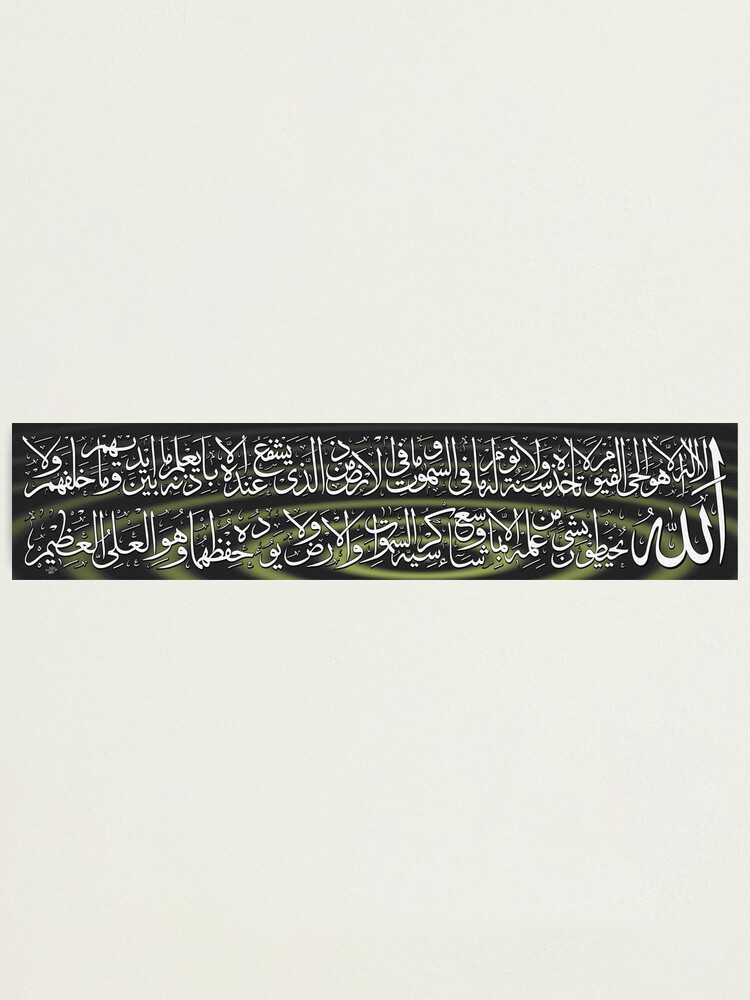 الله لا اله الا هو الحي القيوم لا تاخذه سنة ولا نوم له ما في السموت وما في الارض من ذا الذي يشفع عنده الا باذنه يعلم ما بين ايديهم وما خلفهم ولا
يحيطون بشئ من علمه الا بما شاء وسع كرسيه السموات والارض ولا يوده حفظهما وهو العلي العظيم